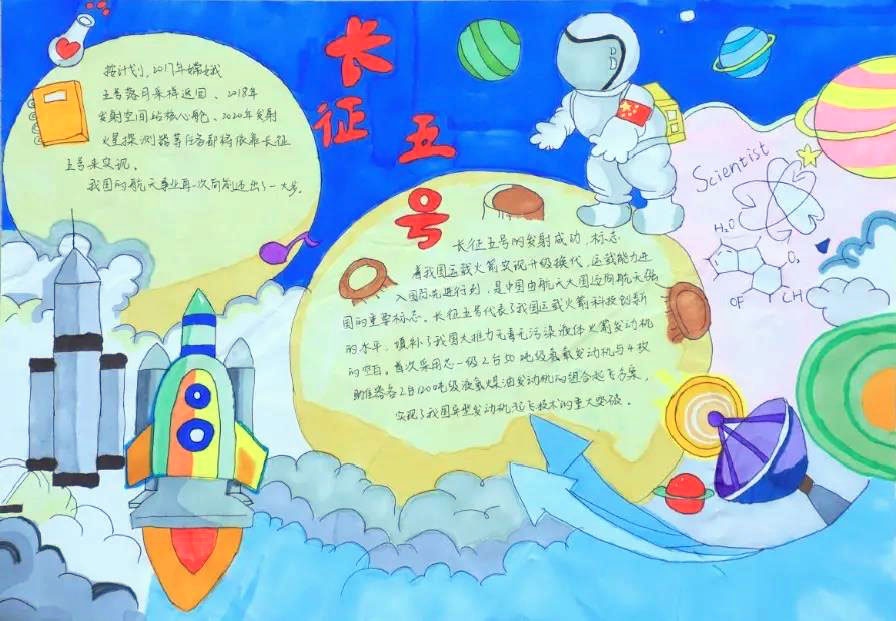 长征五号
按计划，2017年嫦娥
五号落月采样返回、2018年
发射空间站核心舱、2020年发射
火星探测器等任务都将依靠长征
五号来实现。
我国的航天事业再一次向前迈出了一大步。
长征五号的发射成功，标志
着我国运载火箭实现升级换代，运载能力进
入国际先进行列，是中国由航天大国迈向航天强
国的重要标志。长征五号代表了我国运载火箭科技创新
的水平，填补了我国大推力无毒无污染液体火箭发动机
的空白。首次采用芯一级2台50吨级氢氧发动机与4枚
助推器各2台120吨级液氧煤油发动机的组合起飞方案，
实现了我国发动机起飞技术的重大突破。
Scientist
H₂O
O₂
OF
CH